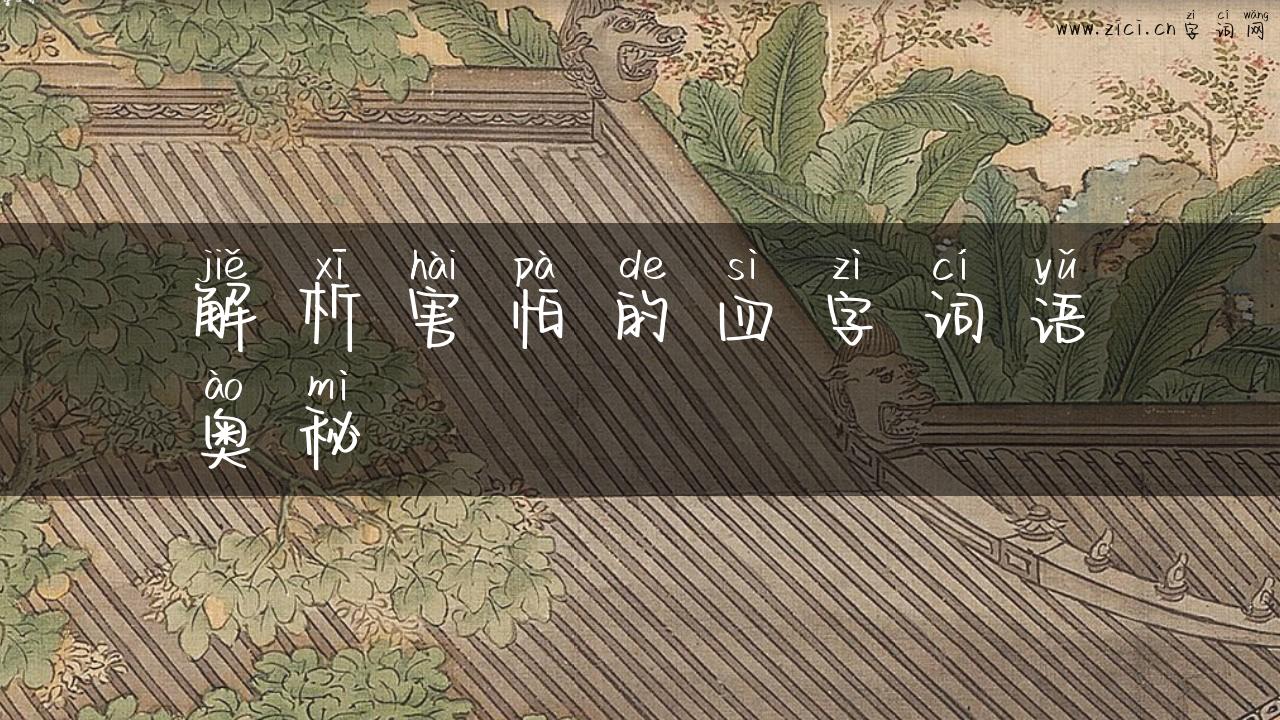 zì cí wǎng
www.zici.cn 字 词 网
jiě xī hài pà de sì zì cí yǔ
解 析 害 怕 的 四 字 词 语
ào mì
奥 秘